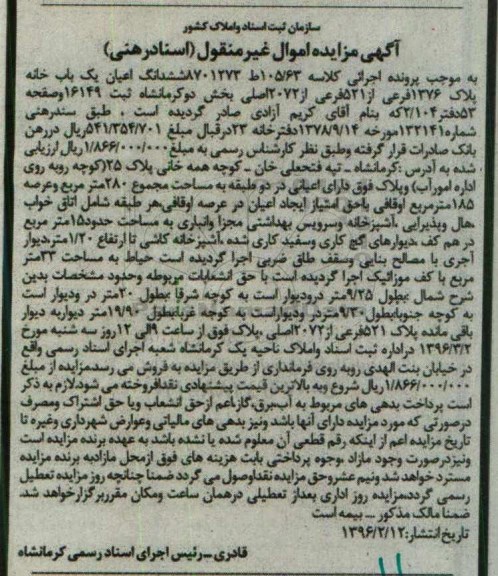 سازمان ثبت اسناد واملاک کشور
آگهی مزایده اموال غیر منقول (اسناد رهنی)
به موجب پرونده اجرائی کلاسه ۱۰۵/۶۳ط ۸۷۰۱۲۷۳ششدانگ اعیان یک باب خانه
پلاک ۱۳۷۶فرعی از۵۲۱فرعی از۲۰۷۲اصلی بخش دوکرمانشاه ثبت ۱۶۱۴۹وصفحه
۵۳دفتر۲/۱۰۴که بنام آقای کریم آزادی صادر گردیده است ، طبق سندرهنی
شماره۱۳۲۱۴۱مورخه ۱۳۷۸/۹/۱۴دفترخانه ۲۳درقبال مبلغ ۵۴۱/۳۵۴/۷۰۱ریال دررهن
بانک صادرات قرار گرفته وطبق نظر کارشناس رسمی به مبلغ۱/۸۶۶/۰۰۰/۰۰۰ریال ارزیابی
شده به آدرس :کرمانشاه ـ تپه فتحعلی خان ـ کوچه همه خانی پلاک ۲۵(کوچه روبه روی
اداره امورآب) وپلاک فوق دارای اعیانی در دو طبقه به مساحت مجموع ۲۸۰متر مربع وعرصه
۱۸۵مترمربع اوقافی باحق امتیاز ایجاد اعیان در عرصه اوقافی،هر طبقه شامل اتاق خواب
،هال وپذیرایی ،آشپزخانه وسرویس بهداشتی مجزا وانباری به مساحت حدود۱۵متر مربع
در هم کف ،دیوارهای گچ کاری وسفید کاری شده ،آشپزخانه کاشی تا ارتفاع ۱/۲۰متر،دیوار
آجری با مصالح بنایی وسقف طاق ضربی اجرا گردیده است حیاط به مساحت ۳۳متر
مربع با کف موزائیک اجرا گردیده است با حق انشعابات مربوطه وحدود مشخصات بدین
شرح شمال :بطول ۹/۲۵متر درودیوار است به کوچه شرقا :بطول ۲۰متر در ودیوار است
به کوچه جنوبا:بطول۹/۳۰متردر ودیواراست به کوچه غربا:بطول ۱۹/۹۰متر دیواربه دیوار
باقی مانده پلاک ۵۲۱فرعی از۲۰۷۲اصلی ،پلاک فوق از ساعت ۹الی ۱۲روز سه شنبه مورخ
۱۳۹۶/۳/۲ دراداره ثبت اسناد واملاک ناحیه یک کرمانشاه شعبه اجرای اسناد رسمی واقع
در خیابان بنت الهدی روبه روی فرمانداری از طریق مزایده به فروش می رسد،مزایده از مبلغ
۱/۸۶۶/۰۰۰/۰۰۰ ریال شروع وبه بالاترین قیمت پیشنهادی نقدافروخته می شود.لازم به ذکر
است پرداخت بدهی های مربوط به آب،برق،گاز،اعم ازحق انشعاب ویا حق اشتراک ومصرف
درصورتی که مورد مزایده دارای آنها باشد ونیز بدهی های مالیاتی وعوارض شهرداری وغیره تا
تاریخ مزایده اعم از اینکه رقم قطعی آن معلوم شده یا نشده باشد به عهده برنده مزایده است
ونیزدرصورت وجود مازاد ،وجوه پرداختی بابت هزینه های فوق ازمحل مازادبه برنده مزایده
مسترد خواهد شد ونیم عشروحق مزایده نقداوصول می گردد ضمنا چنانچه روز مزایده تعطیل
رسمی گردد،مزایده روز اداری بعداز تعطیلی درهمان ساعت ومکان مقرربرگزار خواهد شد.
ضمنا مالک مذکور ... بیمه است
تاریخ انتشار:۱۳۹۶/۲/۱۲
قادری ـ رئیس اجرای اسناد رسمی کرمانشاه